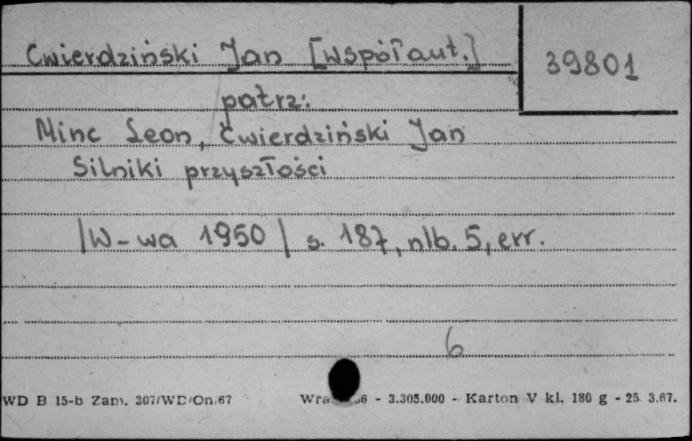 Cwierdziński Jan [współaut.]
39801
patrz:
Minc Leon, Ćwierdziński Jan
Silniki przyszłości
/W-wa 1950/ s. 187, nlb. 5, err.
6
WD B 15-b Zam. 307/WD/On/67 - 3.305.000 - Karton V kl. 180 g - 25. 3.67.